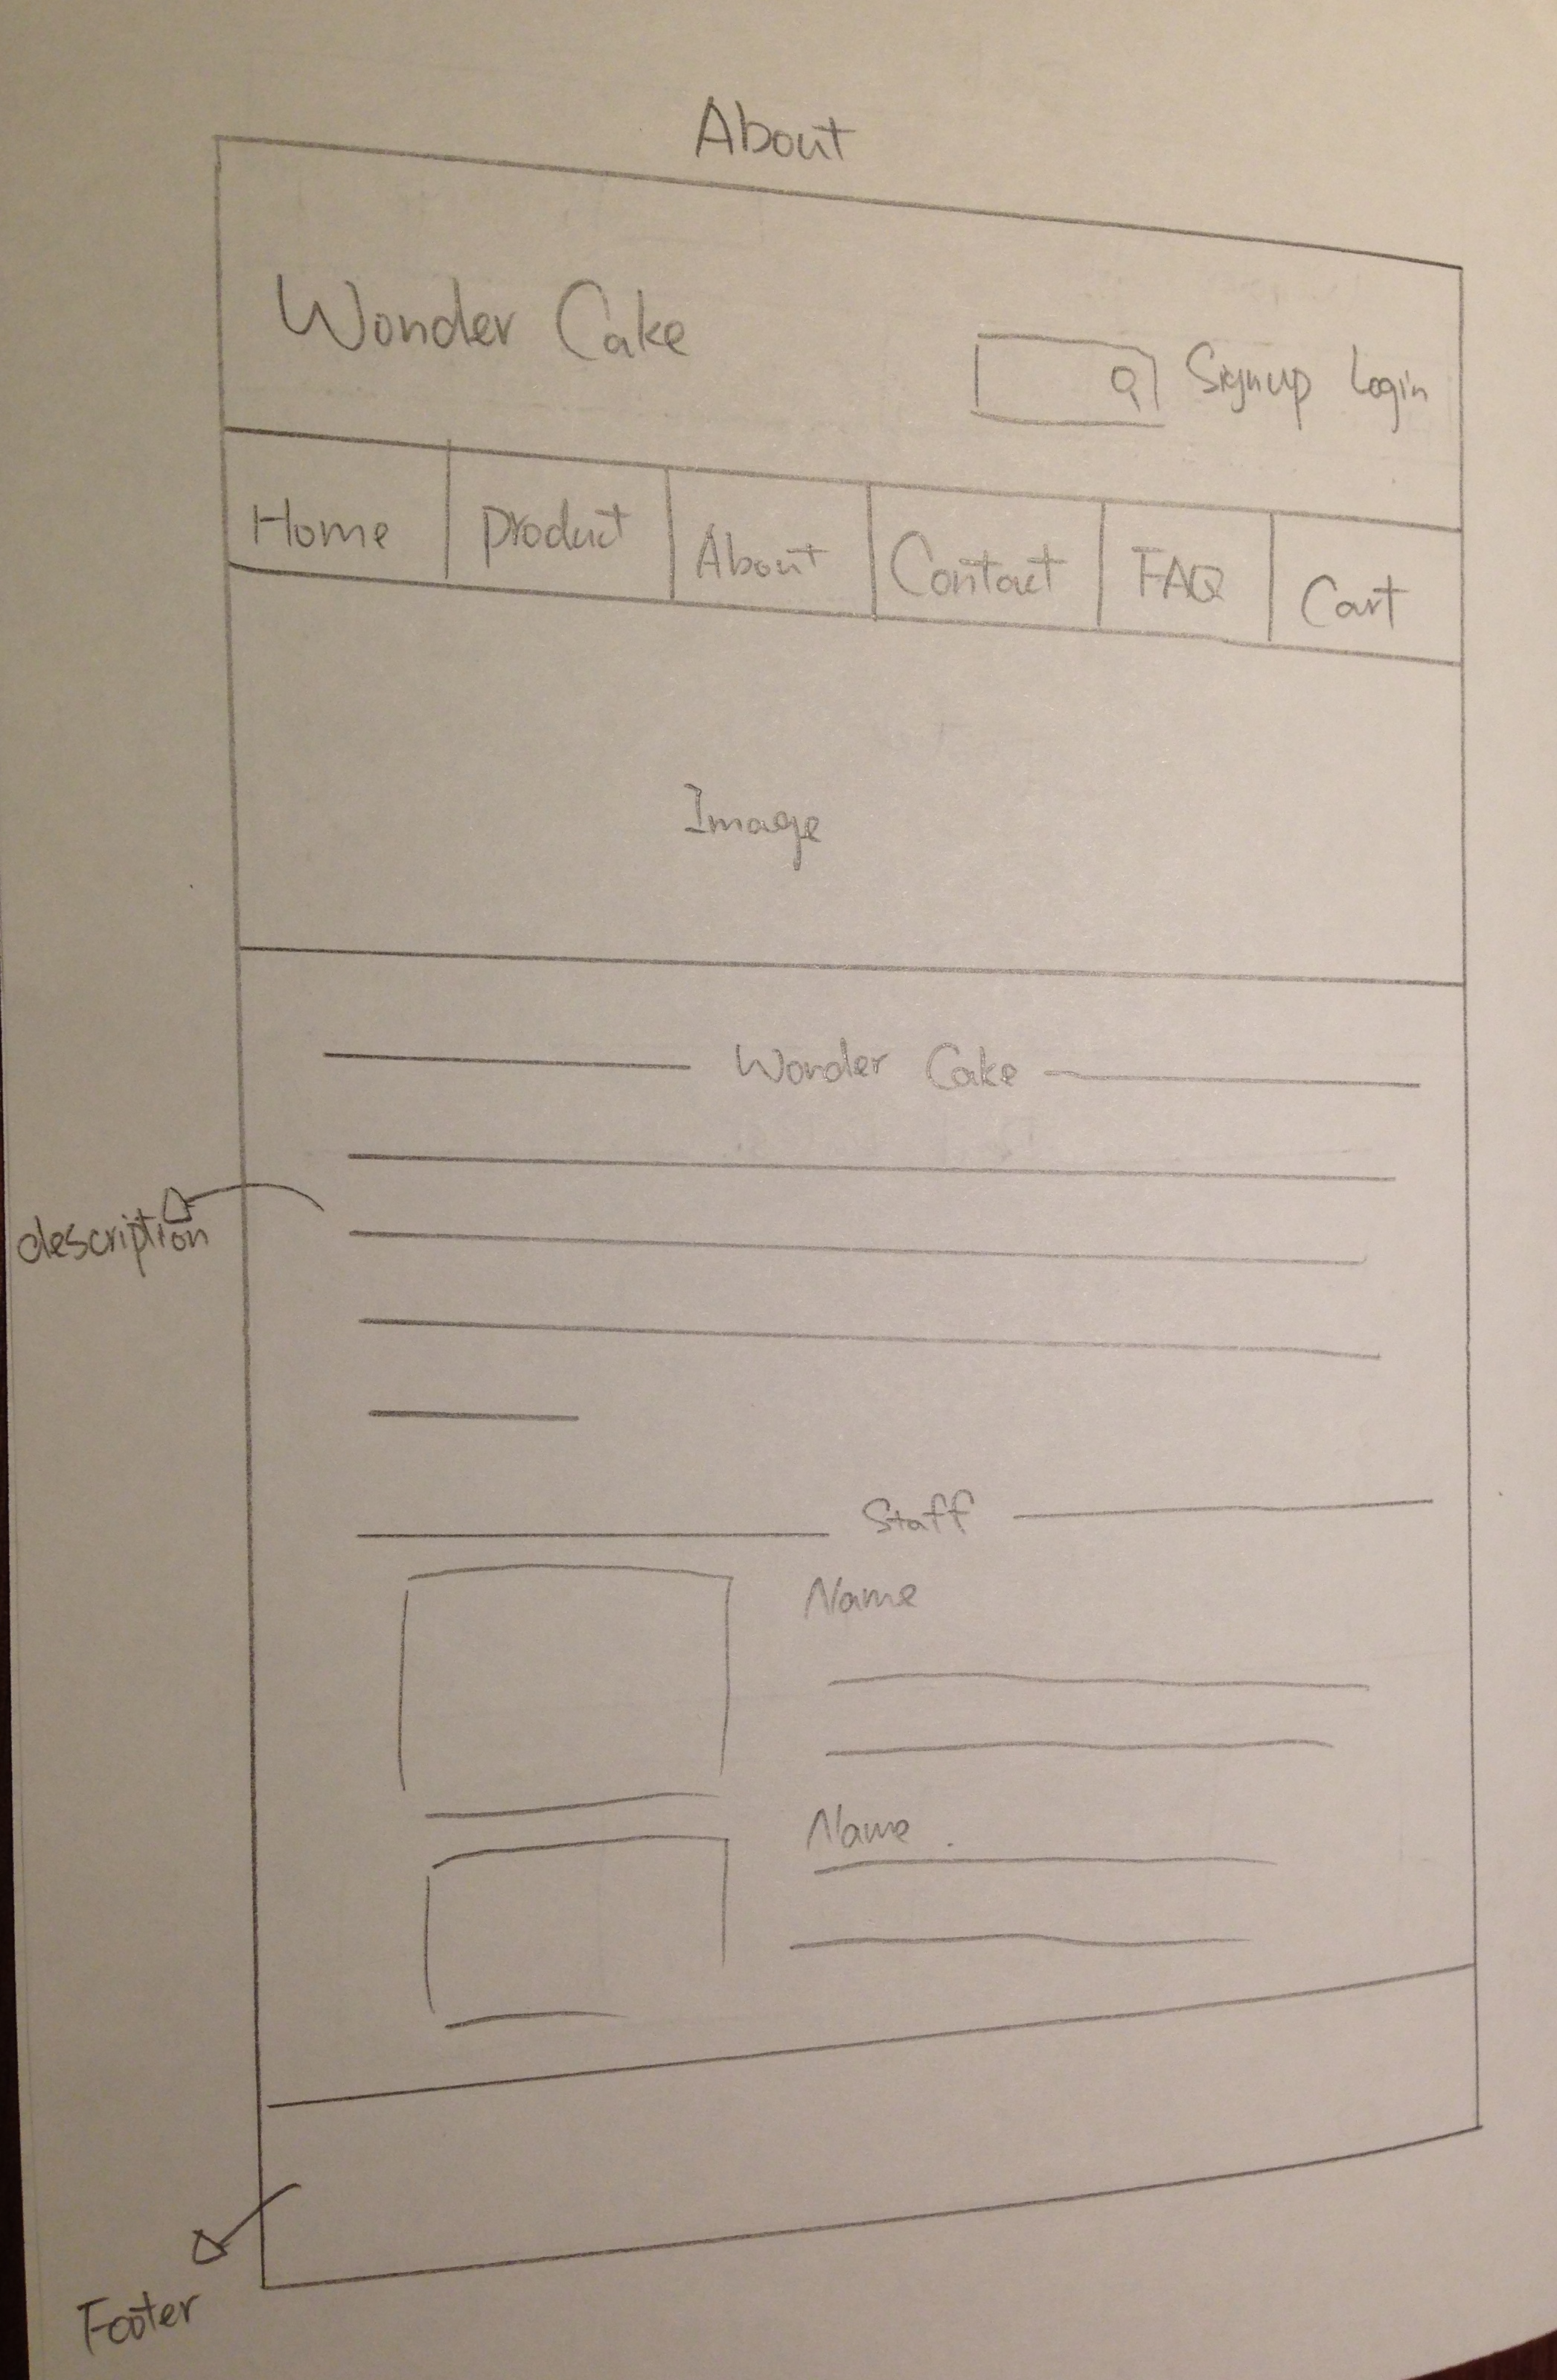 About
Wonder Cake
Signup Login
Home Product About Contact FAQ Cart
Image
Wonder Cake
description
Staff
Name
Name
Footer